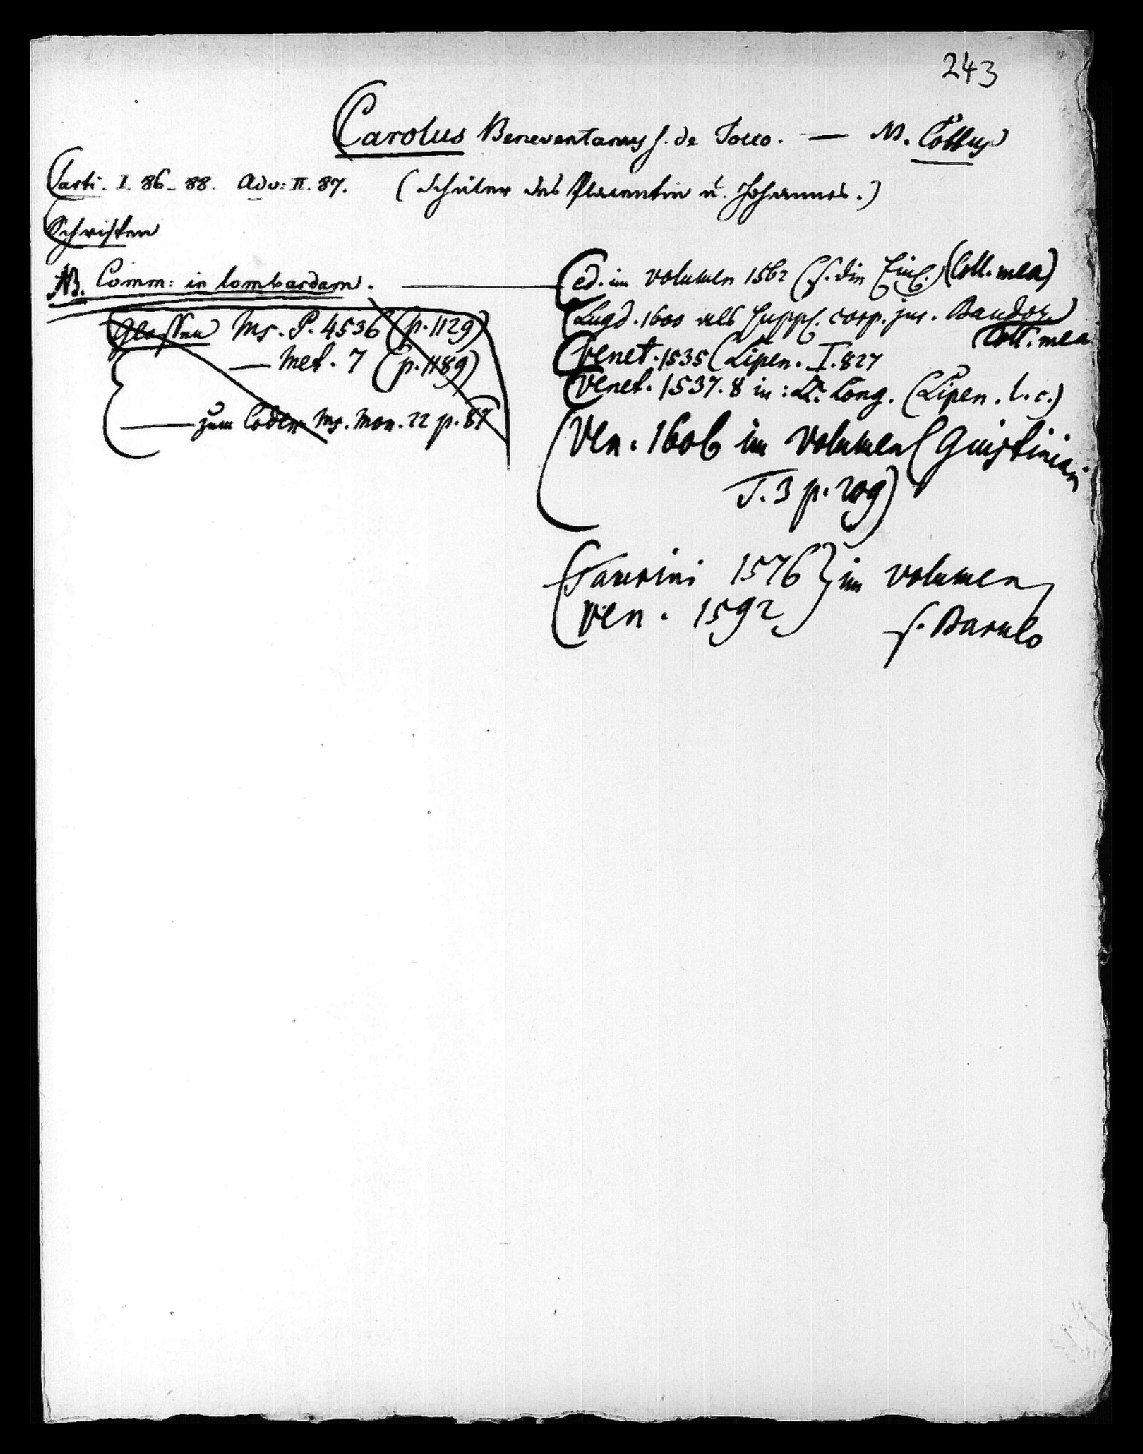 243
Carolus Beneventanus s. de Tocco. — NB. Cottus
Sarti. I. 86-88. Adv: II. 87. (Schüler des Placentin u. Johannes.)
Schriften
NB. Comm: in lombardam. —
(ed. im volumen 1562 (s. die Einl.) (Coll. mea)
Glossen Ms. P. 4536 (p. 1129)
— Met. 7 (p. 1189)
— zum Codex Ms. Mon. 22 p. 87
(Lugd. 1600 als Suppl. corp. jur. Baudoz
Coll. mea
(Venet. 1535 (Lipen. I. 827
(Venet. 1537. 8 in: LL. Long. (Lipen. l. c.)
(Ven. 1606 im volumen (Giustiniani
T. 3 p. 209)
(Taurini 1576} im volumen
(Ven. 1592
s. Barulo